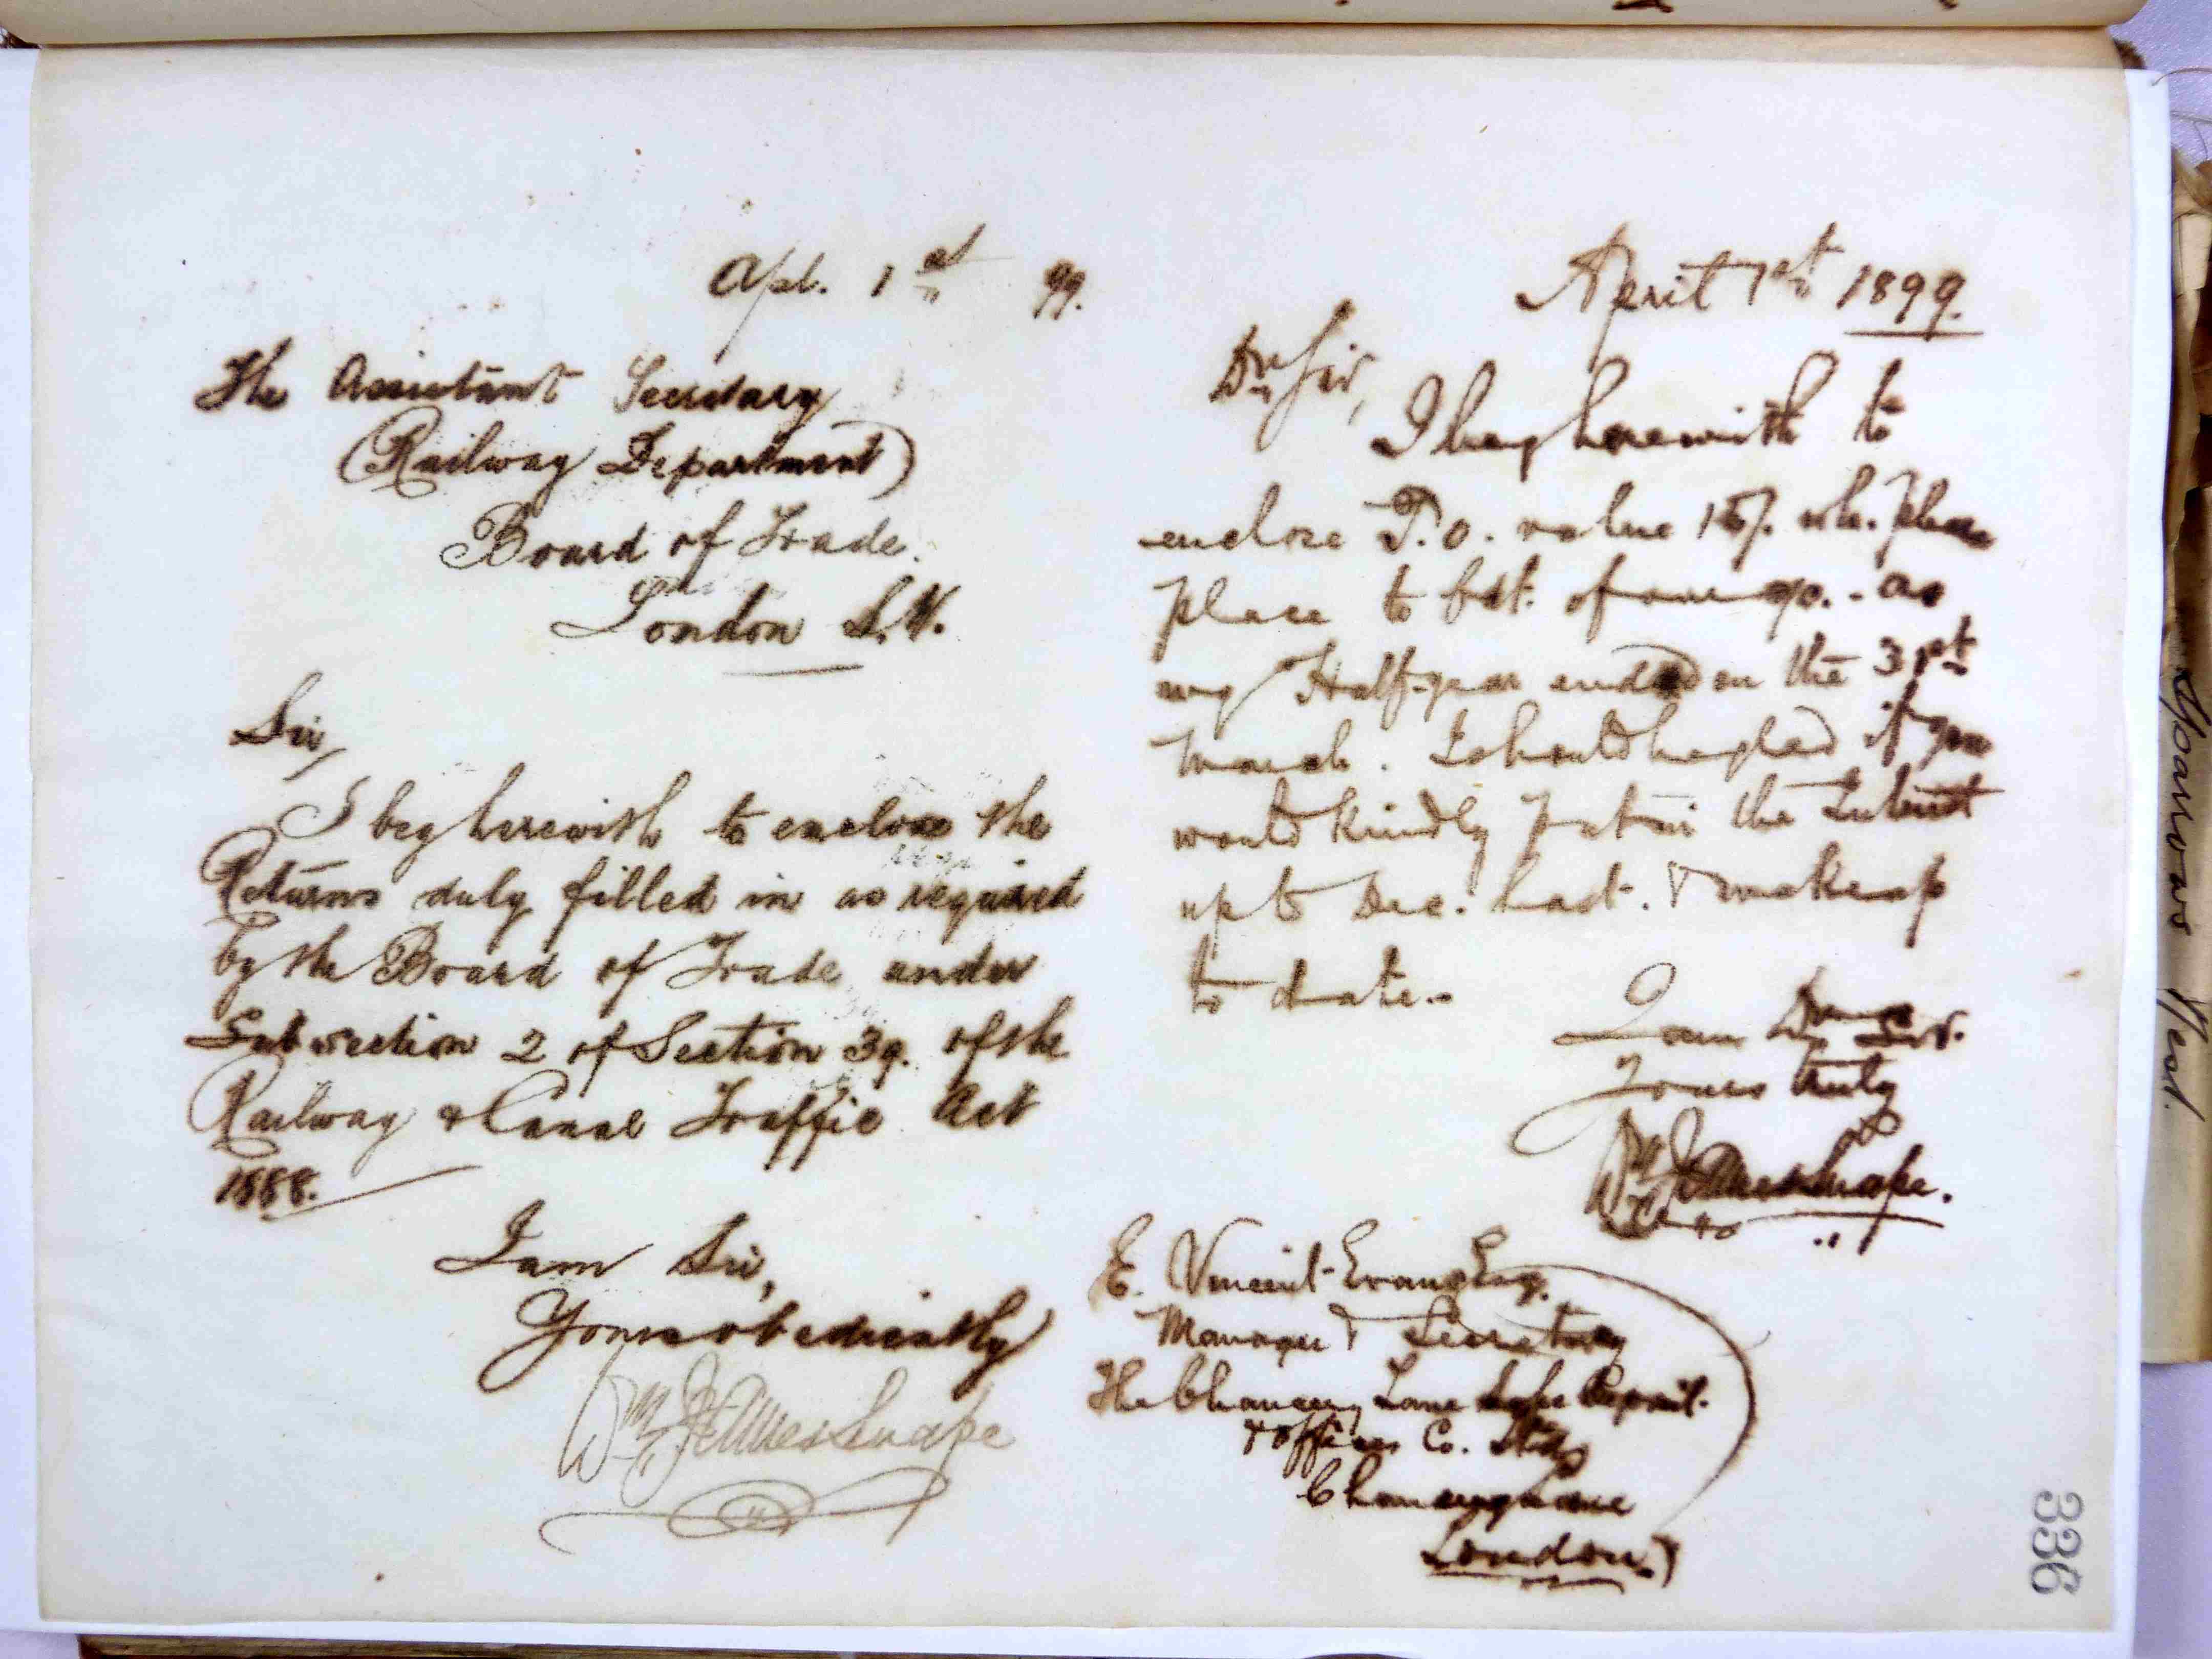 Apl. 1st 99.
The Assistant Secretary
(Railway Department)
Board of Trade.
London S.W.
Sir,
I beg herewith to enclose the
Returns duly filled in as required
by the Board of Trade under
Subsection 2 of Section 39. of the
Railway & Canal Traffic Act
1888.
I am Sir,
Yours obediently
Wm
April 1st 1899.
Dr Sir,
I beg herewith to
enclose P.O. value 15/. wh. please
place to of our - as
my Half-year ended on the 31st
March. I should be glad if you
would kindly put in the
up to Dec. last. & make up
to date.-
I am Dr Sir.
Yours truly
Wm
E. Vincent Evans Esq.
Manager & Secretary
The Chancery Lane Safe Deposit.
& Offices Co. Ltd
Chancery Lane
London.)
336
West.